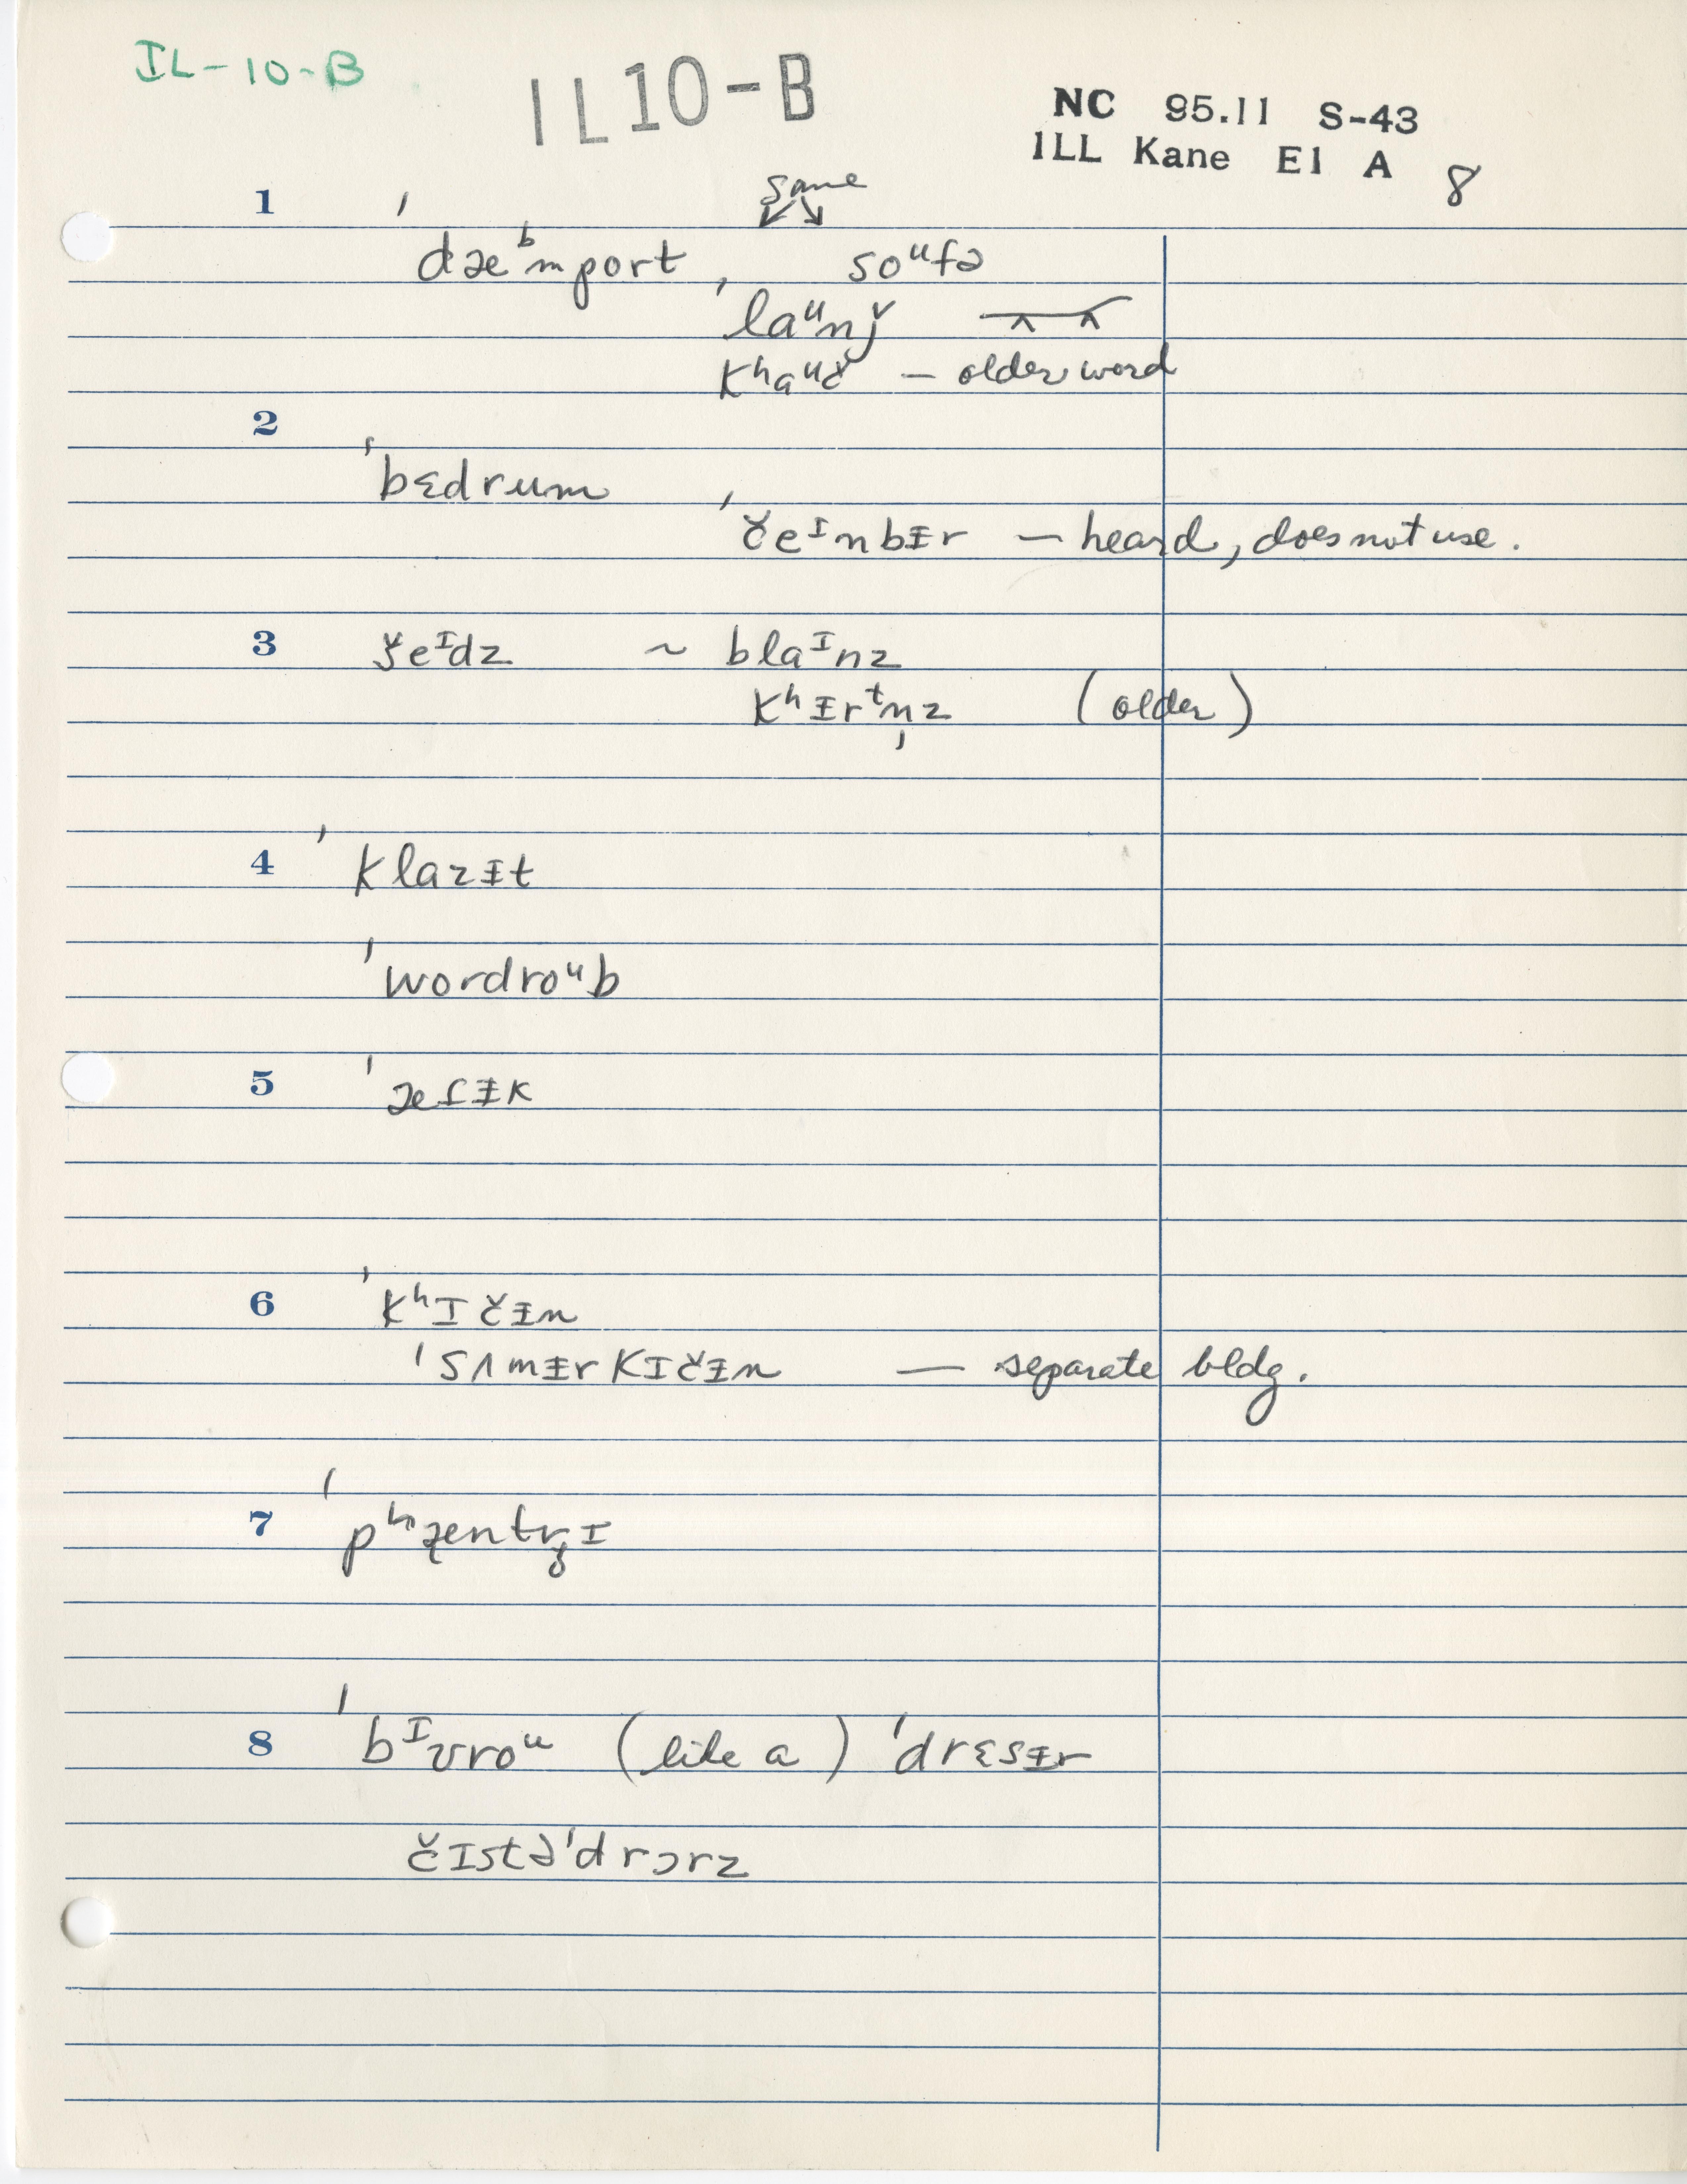 IL-10-B
IL10-B
NC 95.11 S-43
ILL Kane E1 A 8
same
1 ˈdæᵇmport, soᵘfə
ˈlaᵘnǰ
kʰaᵘč — older word
2 ˈbɛdrum
ˈčeᴵmbɪ̵r — heard, does not use.
3 šeᴵdz ~ blaᴵnz
kʰɪ̵rᵗn̩z (older)
4 ˈklazɪ̵t
ˈwordroᵘb
5 ˈætɪ̵k
6 ˈkʰɪčɪ̵n
ˈsʌmɪ̵rkɪčɪ̵n — separate bldg.
7 ˈpʰæntrɪ
8 ˈbᴵʊroᵘ (like a) ˈdrɛsɪ̵r
čɪstəˈdrɔrz